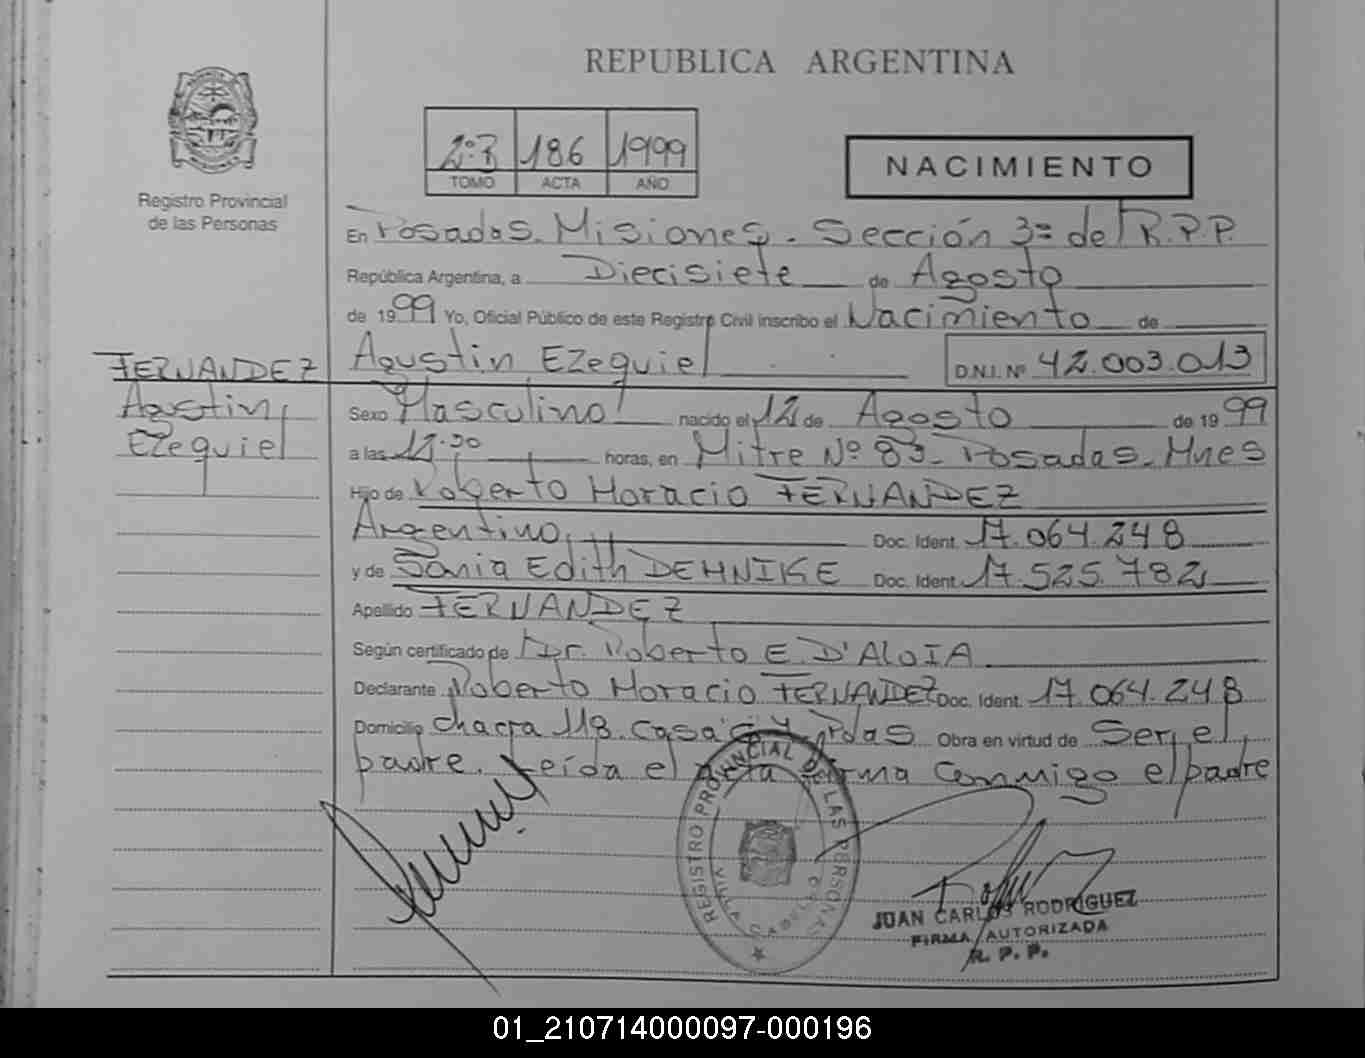 REPUBLICA ARGENTINA
Registro Provincial
de las Personas
2º3 186 1999
TOMO ACTA AÑO
NACIMIENTO
En Posadas. Misiones. Sección 3ª del R.P.P.
República Argentina, a Diecisiete de Agosto
de 1999 Yo, Oficial Público de este Registro Civil inscribo el Nacimiento de
Agustin Ezequiel D.N.I. Nº 42.003.013
FERNANDEZ
Agustin
Ezequiel
Sexo Masculino nacido el 12 de Agosto de 1999
a las horas, en Mitre Nº 83. Posadas. Mnes
Hijo de Roberto Horacio FERNANDEZ
Argentino, Doc. Ident. 17.064.248
y de Sonia Edith DEHNIKE Doc. Ident. 17.525.782
Apellido FERNANDEZ
Según certificado de Dr. Roberto E. D'ALOIA
Declarante Roberto Horacio FERNANDEZ Doc. Ident. 17.064.248
Domicilio chacra 118. casa Pdas Obra en virtud de Ser el
padre. Leída el acta firma conmigo el padre
REGISTRO PROVINCIAL DE LAS PERSONAS
VILLA CABELLO
JUAN CARLOS RODRIGUEZ
FIRMA AUTORIZADA
R. P. P.
01_210714000097-000196